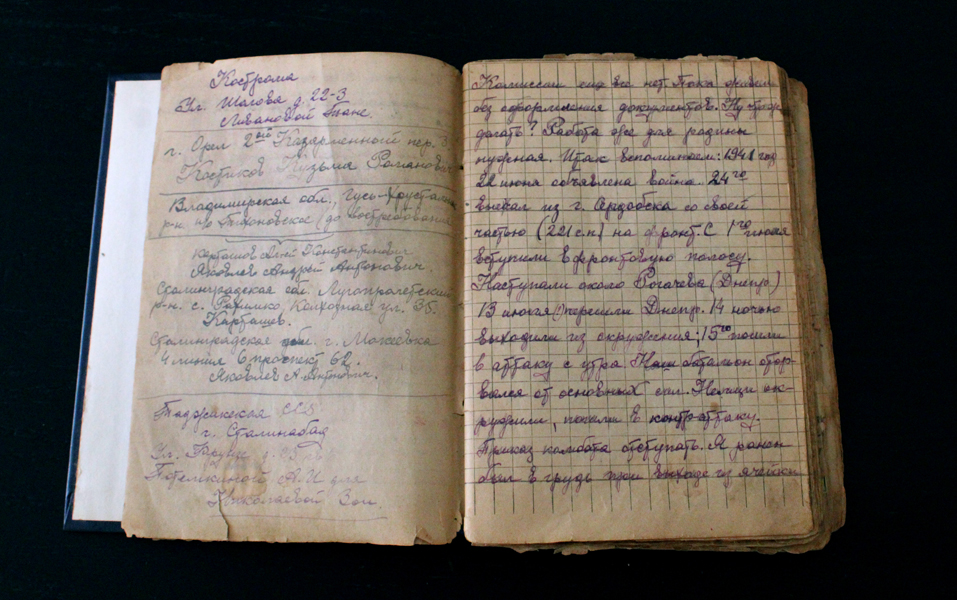 Кострома
Ул. Шагова д. 22-3
Ливановой Тане.
г. Орел 2ой Казарменный пер. 3
Костиков Кузьма Романович
Владимирская обл., Гусь-Хрустальн
р-н п/о Тихоновское (до востребования
Карташов Константинович
Яковлев Андрей Антонович.
Сталинградская обл.
р-н. с. Колхозная ул. 35.
Карташов.
Сталинградская обл. г. Макеевка
4 линия 6 проспект 62.
Яковлев А. Антонович.
Таджикская ССР
г. Сталинабад
Ул.
Потёмкиной А.И для
Николаевой Зои.
Комиссии ещё все нет. Пока
без оформления документов. Ну что
делать? Работа для родины
нужная. Итак вспоминаем: 1941 год
22 июня объявлена война. 24го
выехал из г. со своей
частью (221 с.п.) на фронт. С 1го июля
вступили в фронтовую полосу.
Наступали около Рогачева (Днепр.)
13 июля(?) перешли Днепр. 14 ночью
выходили из окружения; 15го пошли
в аттаку с утра. Наш батальон отор-
вался от основных сил. Немцы ок-
ружили, пошли в контр-аттаку.
Приказ комбата отступать. Я ранен
был в грудь при выходе из ячейки